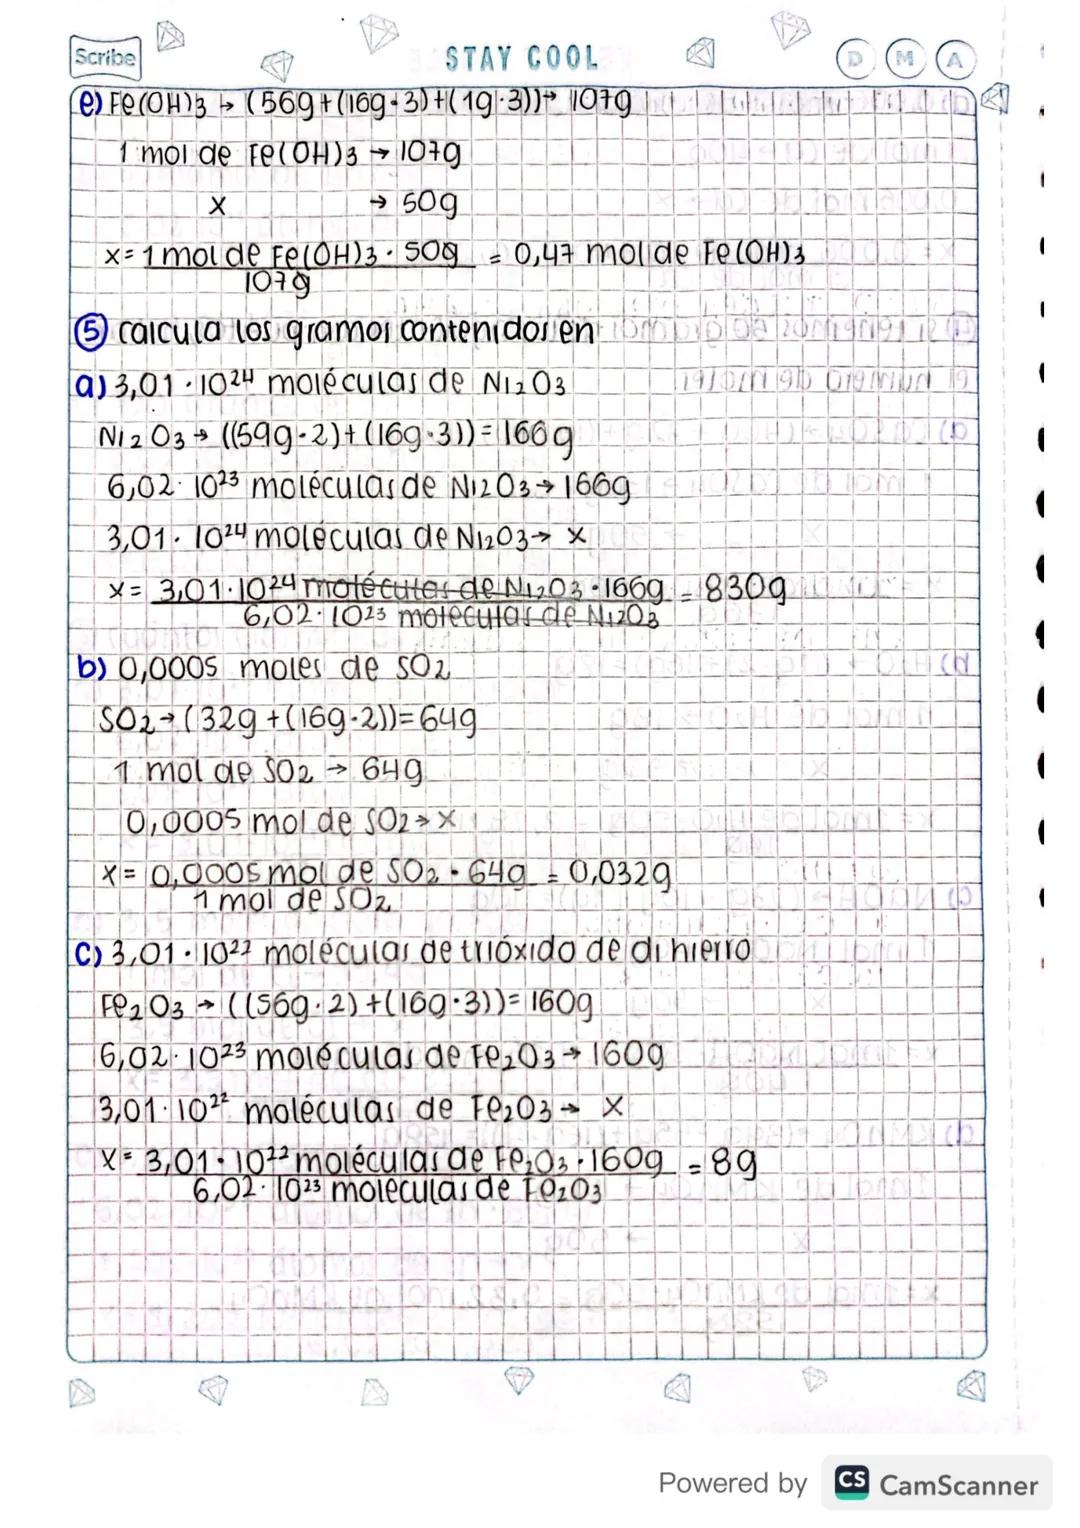 Scribe
STAY COOL
D M A
e) Fe(OH)3 → (56g+(16g·3)+(1g·3))→ 107g
1 mol de Fe(OH)3 → 107g
x → 50g
x= 1 mol de Fe(OH)3 · 50g = 0,47 mol de Fe(OH)3
107g
⑤ calcula los gramos contenidos en
a) 3,01·10²⁴ moléculas de Ni2O3
Ni2O3 → ((59g·2)+(16g·3))=166g
6,02·10²³ moléculas de Ni2O3→166g
3,01·10²⁴ moléculas de Ni2O3→ x
x= 3,01·10²⁴ moléculas de Ni2O3·166g = 830g
6,02·10²³ moleculas de Ni2O3
b) 0,0005 moles de SO2
SO2→(32g+(16g·2))=64g
1 mol de SO2 → 64g
0,0005 mol de SO2→x
x= 0,0005 mol de SO2 · 64g = 0,032g
1 mol de SO2
c) 3,01·10²² moléculas de trióxido de dihierro
Fe2O3 → ((56g·2)+(16g·3))=160g
6,02·10²³ moléculas de Fe2O3→160g
3,01·10²² moléculas de Fe2O3→ x
x= 3,01·10²² moléculas de Fe2O3·160g = 8g
6,02·10²³ moleculas de Fe2O3
Powered by CS CamScanner